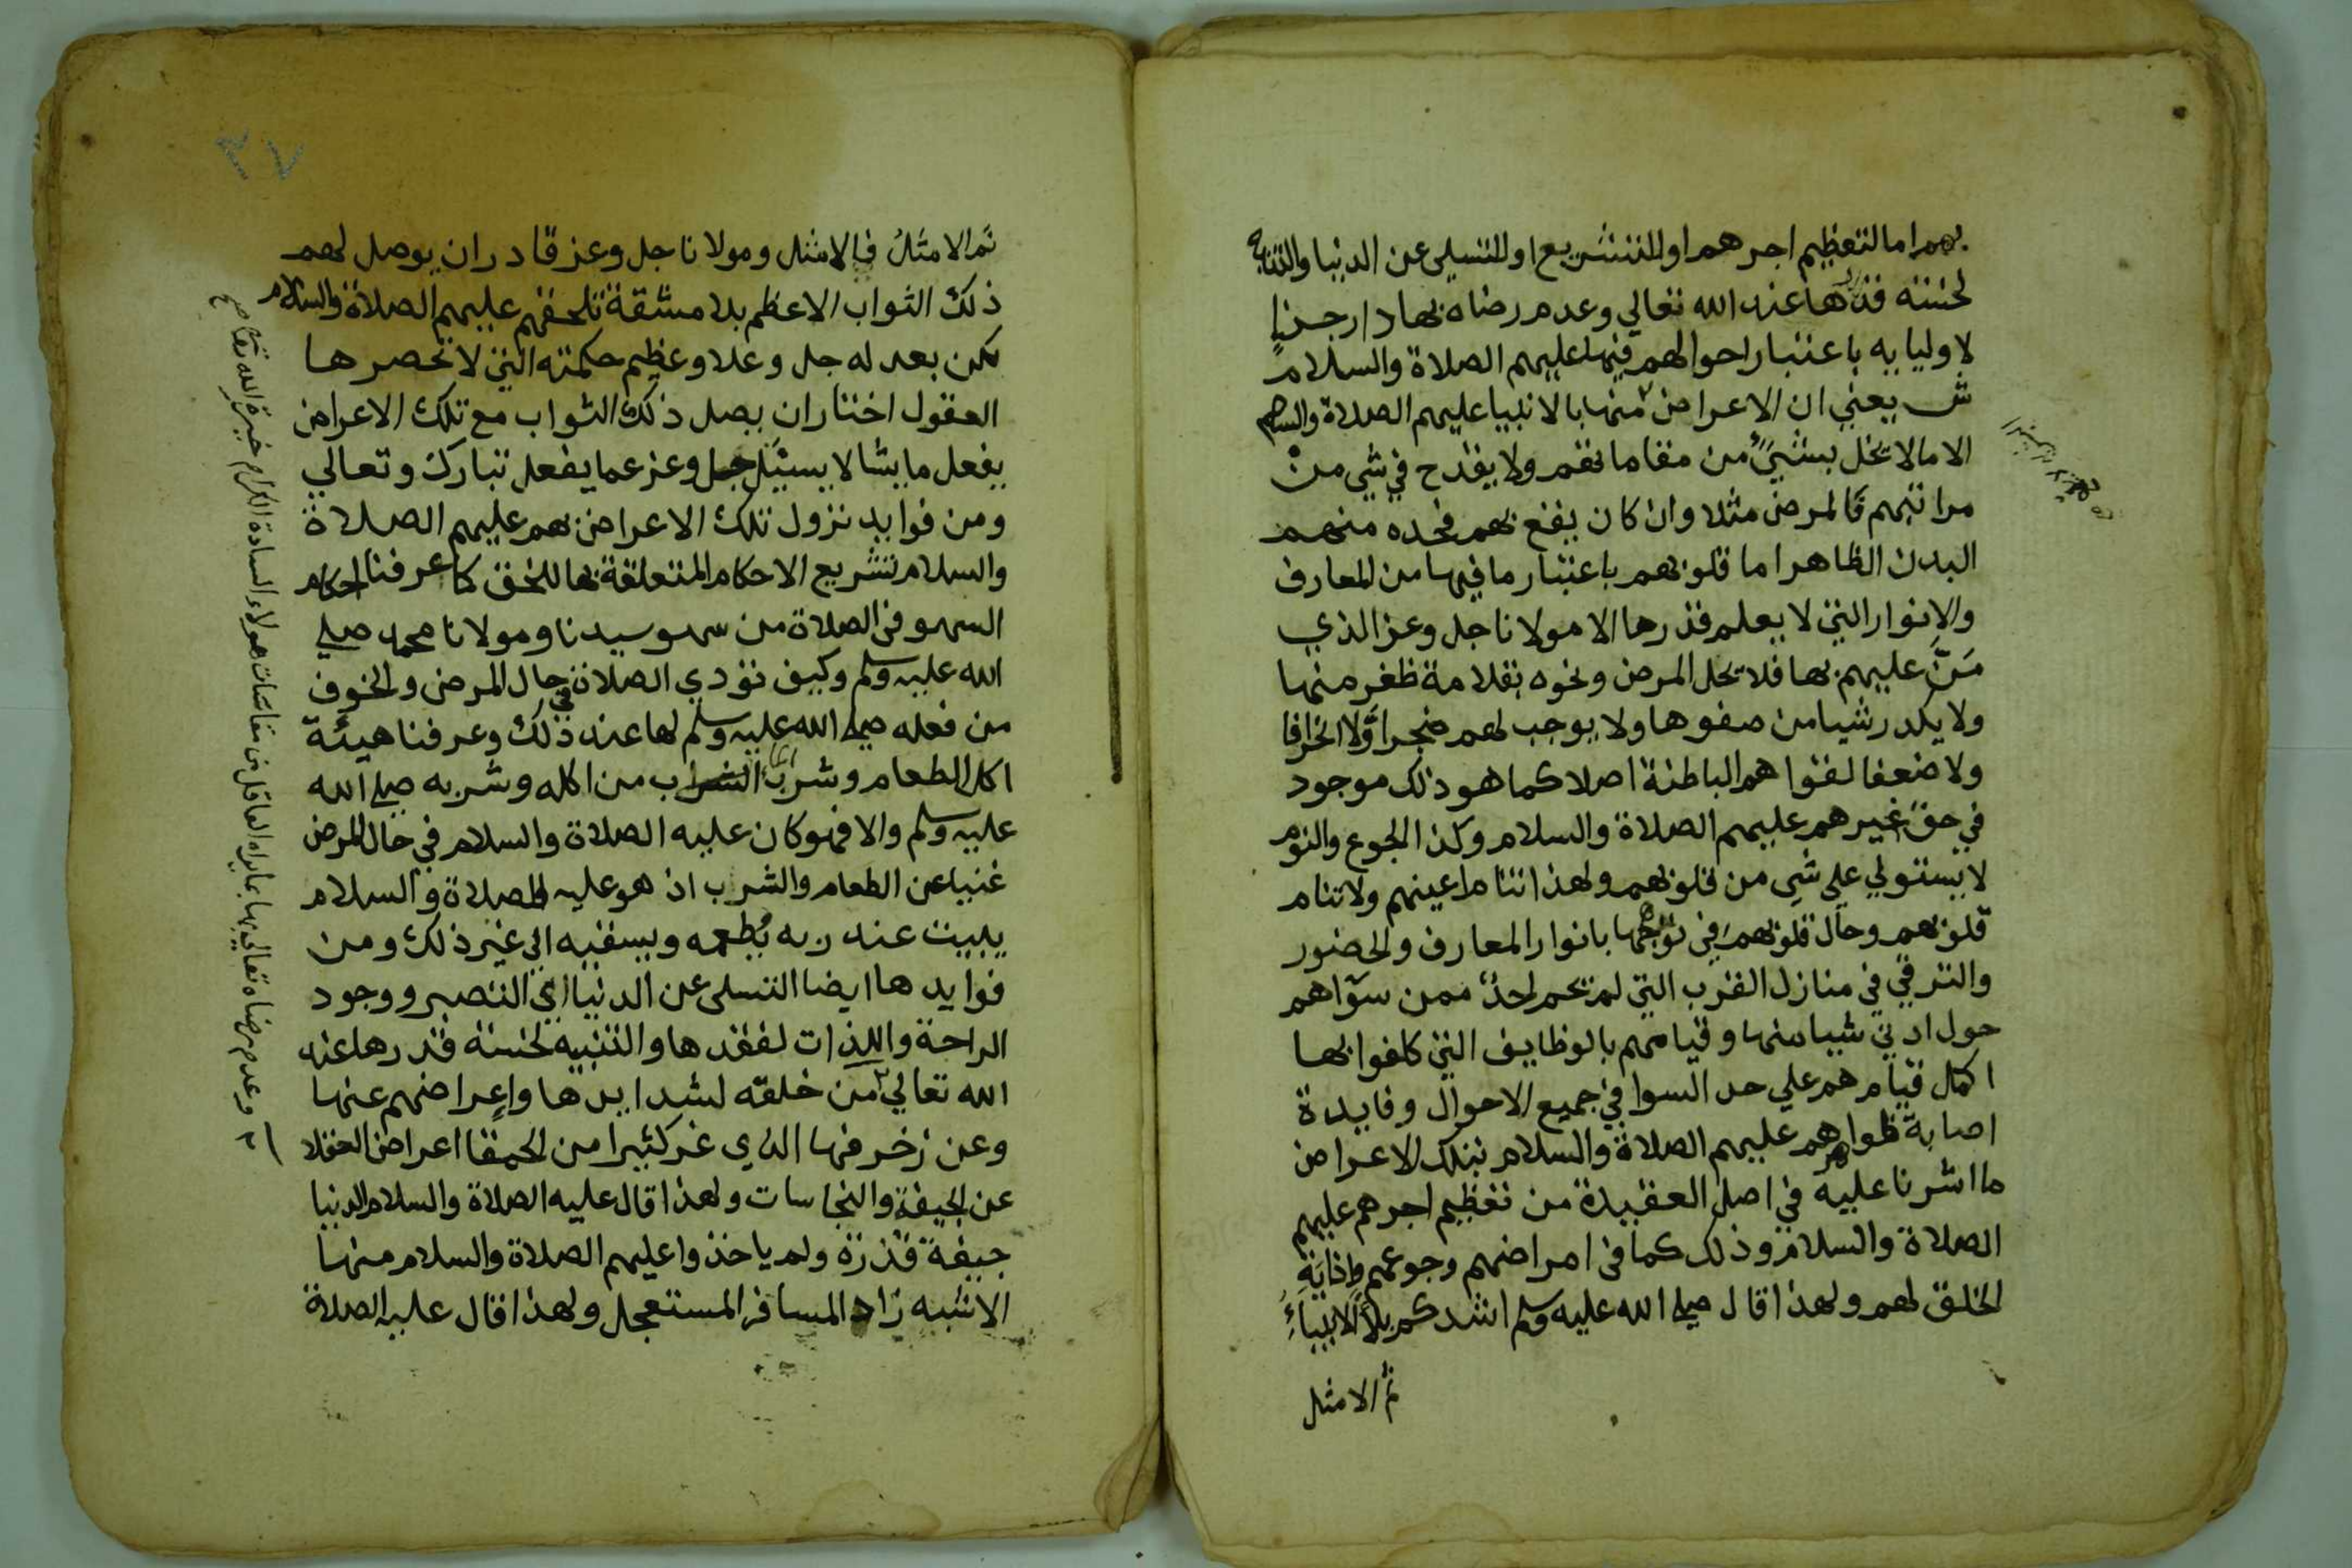 بهم اما لتعظيم اجرهم او للتشريع او للتسلي عن الدنيا والتنبيه
لخسة قدرها عند الله تعالي وعدم رضاه بها دار جزاء
لاوليايه باعتبار احوالهم فيها عليهم الصلاة والسلام
ش يعني ان الاعراض منها بالانبيا عليهم الصلاة والسلام
الا مالا يخل بشيء من مقاماتهم ولا يقدح في شي من
مراتبهم فالمرض مثلا وان كان يقع بهم فحده منهم
البدن الظاهر اما قلوبهم باعتبار ما فيها من المعارف
والانوار التي لا يعلم قدرها الا مولانا جل وعز الذي
مَنَّ عليهم بها فلا يخل المرض ونحوه بقلامة ظفر منها
ولا يكدر شيا من صفوها ولا يوجب لهم ضجرا وَّلا انحرافا
ولا ضعفا لقواهم الباطنة اصلا كما هو ذلك موجود
في حق غيرهم عليهم الصلاة والسلام وكذا الجوع والنوم
لا يستولي علي شي من قلوبهم ولهذا تنام اعينهم ولا تنام
قلوبهم وحال قلوبهم في توهجها بانوار المعارف والحضور
والترقي في منازل القرب التي لم يحم احدٌ ممن سوٓاهم
حول ادني شيا منها وقيامهم بالوظايف التي كلفوا بها
اكمل قيام هم علي حد السوا في جميع الاحوال وفايدة
اصابة ظواهرهم عليهم الصلاة والسلام بتلك الاعراض
ما اشرنا عليه في اصل العقيدة من تعظيم اجرهم عليهم
الصلاة والسلام وذلك كما في امراضهم وجوعهم واذاية
الخلق لهم ولهذا قال صلى الله عليه وسلم اشدكم بلاءً الانبياءُ
ثم الامثل
٢٧
ثم الامثلُ فالامثل ومولانا جل وعز قادر ان يوصل لهم
ذلك الثواب الاعظم بلا مشقة تلحقهم عليهم الصلاة والسلام
لكن بعدله جل وعلا وعظيم حكمته التي لا تحصرها
العقول اختار ان يصل ذلك الثواب مع تلك الاعراض
يفعل ما يشا لا يسئل جل وعز عما يفعل تبارك وتعالي
ومن فوايد نزول تلك الاعراض بهم عليهم الصلاة
والسلام تشريع الاحكام المتعلقة بها للخق كما عرفنا احكام
السهو في الصلاة من سهو سيدنا ومولانا محمد صلي
الله عليه وسلم وكيف نؤدي الصلاة في حال المرض والخوف
من فعله صلى الله عليه وسلم لها عند ذلك وعرفنا هيئة
اكل الطعام وشرب الشراب من اكله وشربه صلى الله
عليه وسلم والا فهو كان عليه الصلاة والسلام في حال المرض
غنيا عن الطعام والشرب اذ هو عليه الصلاة والسلام
يبيت عند ربه يُطعمه ويسقيه الي غير ذلك ومن
فوايدها ايضا التسلي عن الدنيا اي التصبر ووجود
الراحة واللذات لفقدها والتنبيه لخسة قدرها عند
الله تعالي من خلقه لشدايدها واعراضهم عنها
وعن زخرفها الذي غر كثيرا من الحمقا اعراض العقلا
عن الجيفة والنجاسات ولهذا قال عليه الصلاة والسلام الدنيا
جيفة قذرة ولم ياخذوا عليهم الصلاة والسلام منها
الا شبه زاد المسافر المستعجل ولهذا قال عليه الصلاة
وعدم رضاه تعالي بها بما يراه العاقل من مقاسات هولاء السادة الكرام خيرة الله